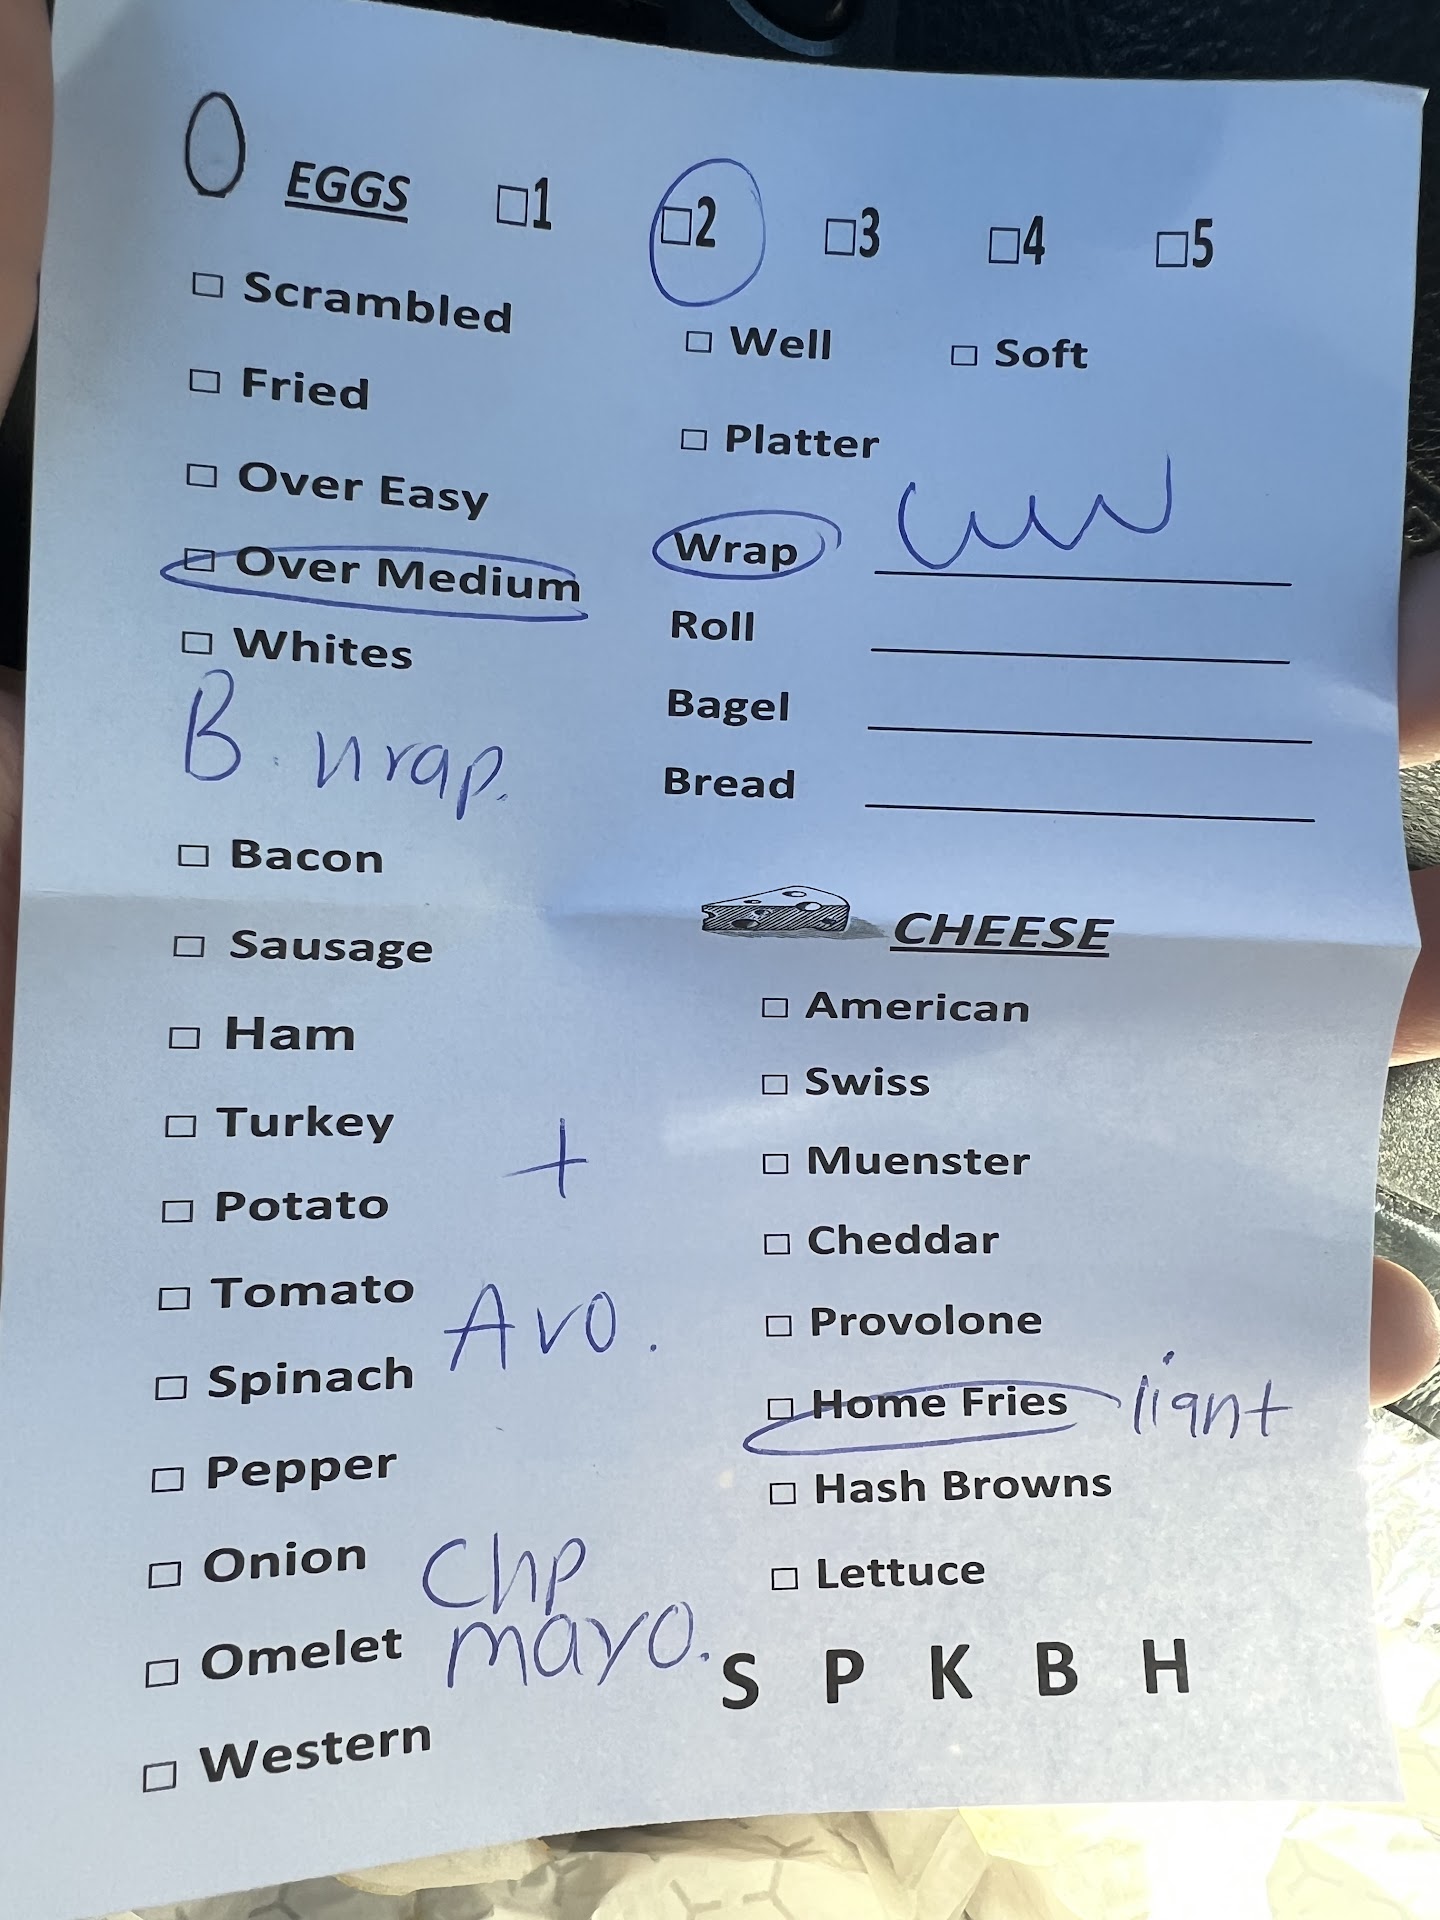 EGGS □1 □2 □3 □4 □5
□ Scrambled
□ Well □ Soft
□ Fried
□ Platter
□ Over Easy
Wrap
□ Over Medium
Roll
□ Whites
Bagel
B. wrap.
Bread
□ Bacon
CHEESE
□ Sausage
□ American
□ Ham
□ Swiss
□ Turkey
+
□ Muenster
□ Potato
□ Cheddar
□ Tomato
Avo.
□ Provolone
□ Spinach
□ Home Fries light
□ Pepper
□ Hash Browns
□ Onion
Chp
□ Lettuce
□ Omelet
mayo.
S P K B H
□ Western